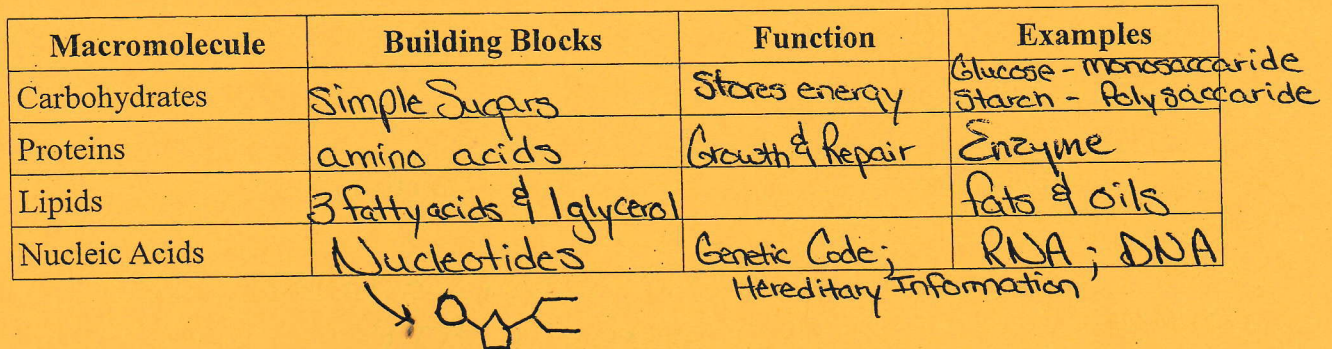 Macromolecule Building Blocks Function Examples
Carbohydrates Simple Sugars Stores energy Glucose - monosaccaride
Starch - Polysaccaride
Proteins amino acids Growth & Repair Enzyme
Lipids 3 fatty acids & 1 glycerol fats & oils
Nucleic Acids Nucleotides Genetic Code; RNA ; DNA
Hereditary Information